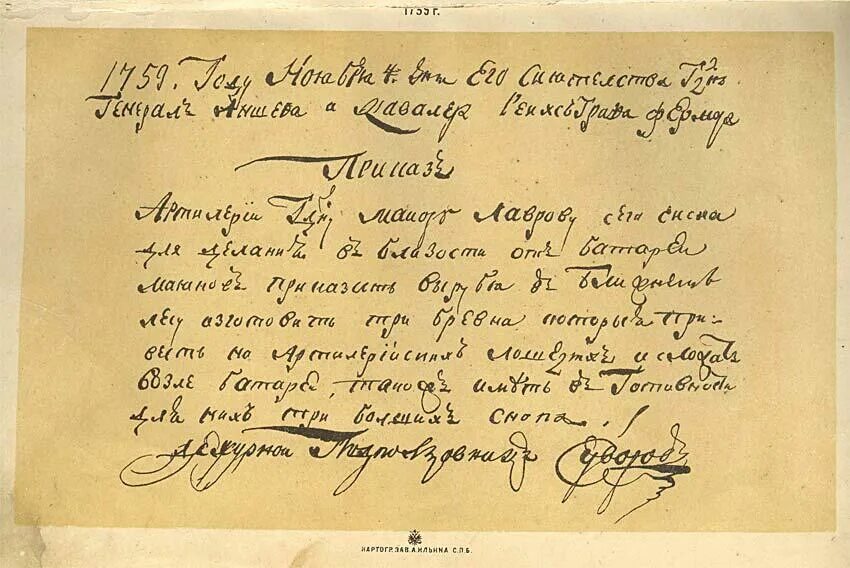 1759 г.
1759. Году Ноябѣа 4. дня Его Сиятелства Гдна
Генералъ Аншефа и Кавалера Графа Фермора
Приказъ
Артилерїи Гдну маиору Лаврову сего числа
для делания въ близости отъ батареи
приказать вырубя въ ближнемъ
лесу изготовить три бревна которыя при-
весть на Артилерїйскихъ лошедяхъ и складть
возле батареи, также иметь въ Готовности
для нихъ три болшихъ снопа
дежурной Подполковникъ Суворовъ
КАРТОГР. ЗАВ. А. ИЛЬИНА С.П.Б.